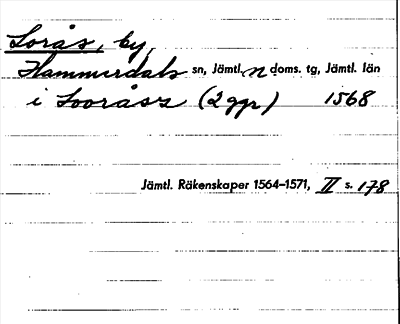 Sorås, by,
Hammerdals sn, Jämtl. n doms. tg, Jämtl. län
i Sooråss (2 ggr) 1568
Jämtl. Räkenskaper 1564–1571, II s. 178